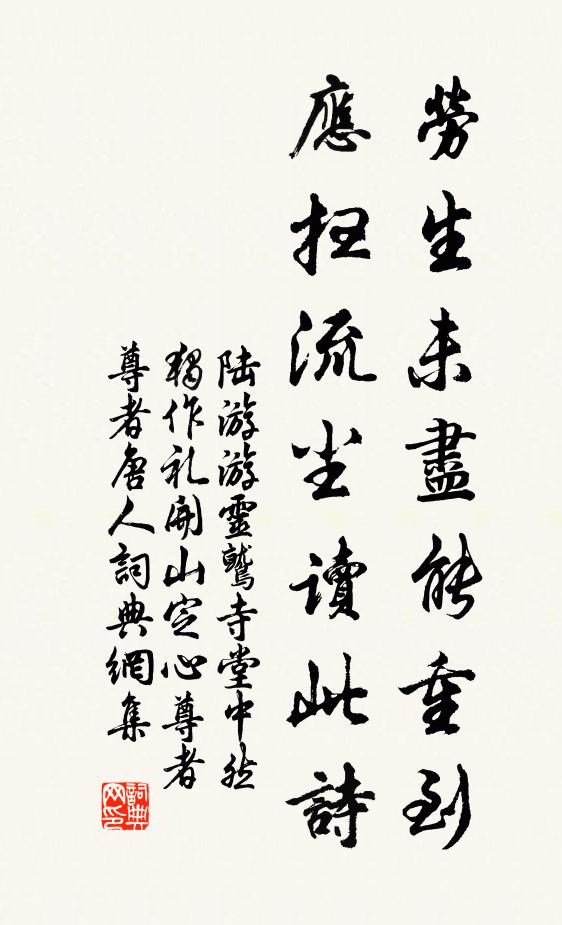 勞生未盡能重到
應掃流尘讀此詩
陆游游靈鷲寺堂中
獨作礼開山定心尊者
尊者唐人詞典網集
詞典网印